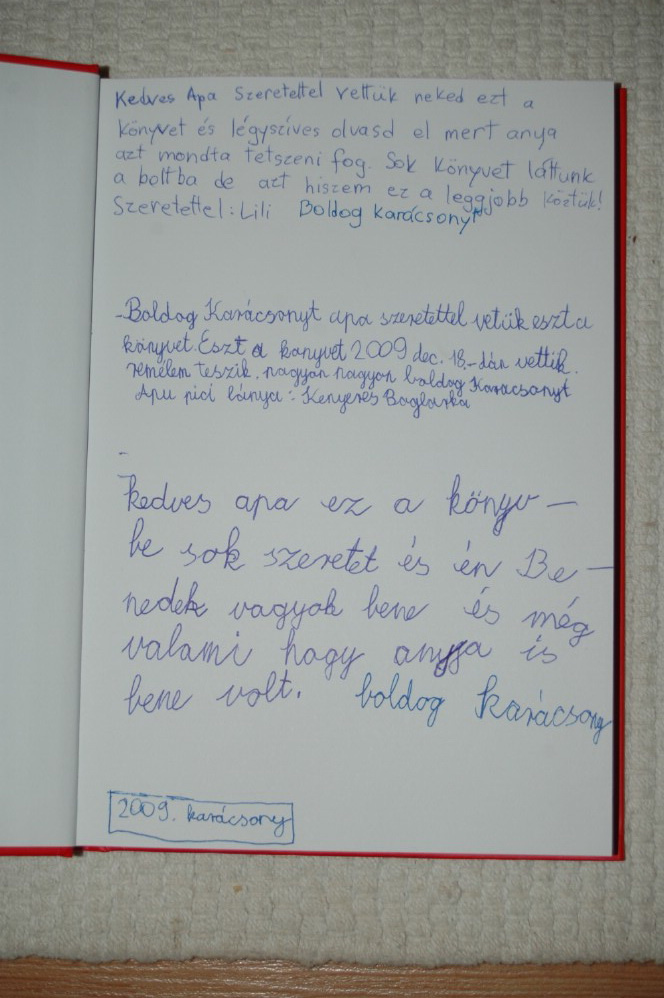 Kedves Apa Szeretettel vettük neked ezt a
könyvet és légyszíves olvasd el mert anya
azt mondta tetszeni fog. Sok könyvet láttunk
a boltba de azt hiszem ez a leggjobb köztük!
Szeretettel: Lili Boldog karácsonyt
-Boldog Karácsonyt apa szeretettel vetük eszt a
könyvet. Eszt a kanyvet 2009 dec. 18.-dán vettük.
rémélem teszik. nagyon nagyon boldog Karácsonyt
Apu pici lánya: Kenyeres Boglárka
kedves apa ez a könyv-
be sok szeretet és én Be-
nedek vagyok bene és még
valami hogy anyja is
bene volt. boldog karácsony
2009. karácsony